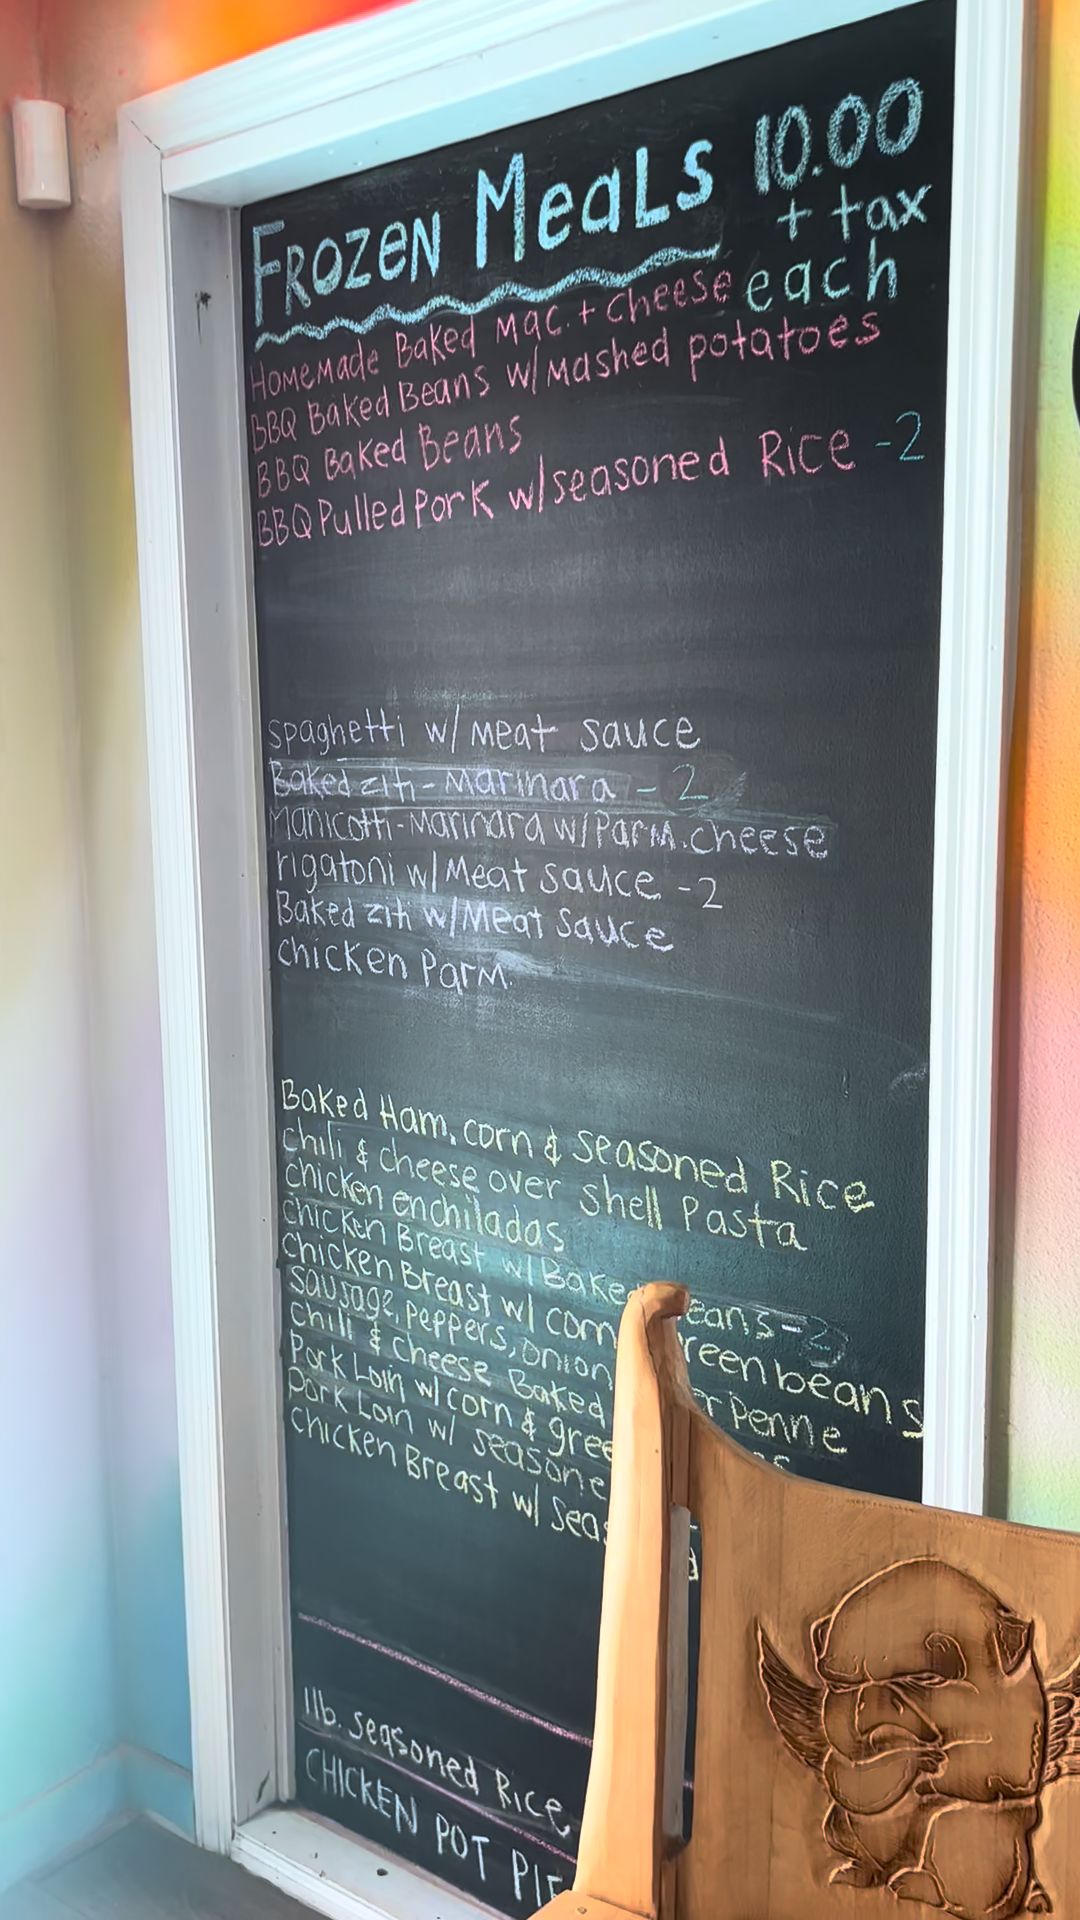 FROZEN MeaLS 10.00
+ tax
each
HOMEMade Baked Mac. + Cheese
BBQ Baked Beans w/ Mashed potatoes
BBQ Baked Beans
BBQ Pulled Pork w/ seasoned Rice - 2
spaghetti w/ Meat sauce
Baked ziti - Marinara - 2
Manicotti - Marinara w/ Parm. cheese
rigatoni w/ Meat sauce - 2
Baked ziti w/ Meat sauce
chicken Parm.
Baked Ham, corn & seasoned Rice
chili & cheese over shell Pasta
chicken enchiladas
chicken Breast w/ Bake eans -
chicken Breast w/ corn reen beans
sausage, peppers, onion r Penne
chili & cheese Baked
Pork Loin w/ corn & gree
Pork Loin w/ seasone
chicken Breast w/ sea
1lb. seasoned Rice
CHICKEN POT PIE